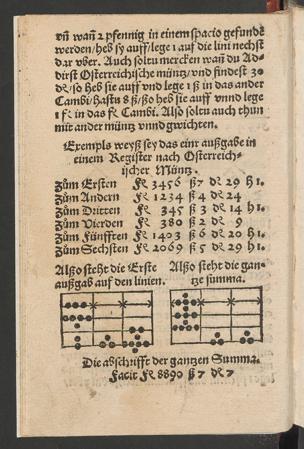 vñ wañ 2 pfennig in einem spacio gefundē
werden/heb sy auff/lege 1 auf die lini nechst
dar vber. Auch soltu mercken wañ du Ad-
dirst Osterreichische müntz/vnd findest 30
de/so heb sie auff vnd lege 1 ß in das ander
Cambi/hastu 8 ß/so heb sie auff vnnd lege
1 fe in das fe Cambi. Also soltu auch thun
mit ander müntz vnnd gwichten.
Exempls weyß sey das einr außgabe in
einem Register nach Osterreich-
ischer Müntz.
Züm Ersten fe 3456 ß 7 de 29 h1.
Züm Andern fe 1234 ß 4 de 24
Züm Dritten fe 345 ß 3 de 14 h1.
Züm Vierden fe 380 ß 2 de 9
Züm Fünfften fe 1403 ß 6 de 20 h1.
Züm Sechsten fe 2069 ß 5 de 29 h1.
Also steht die Erste
außgab auf den linien.
Also steht die gan-
tze summa.
Die abschrifft der gantzen Summa.
Facit fe 8890 ß 7 de 7